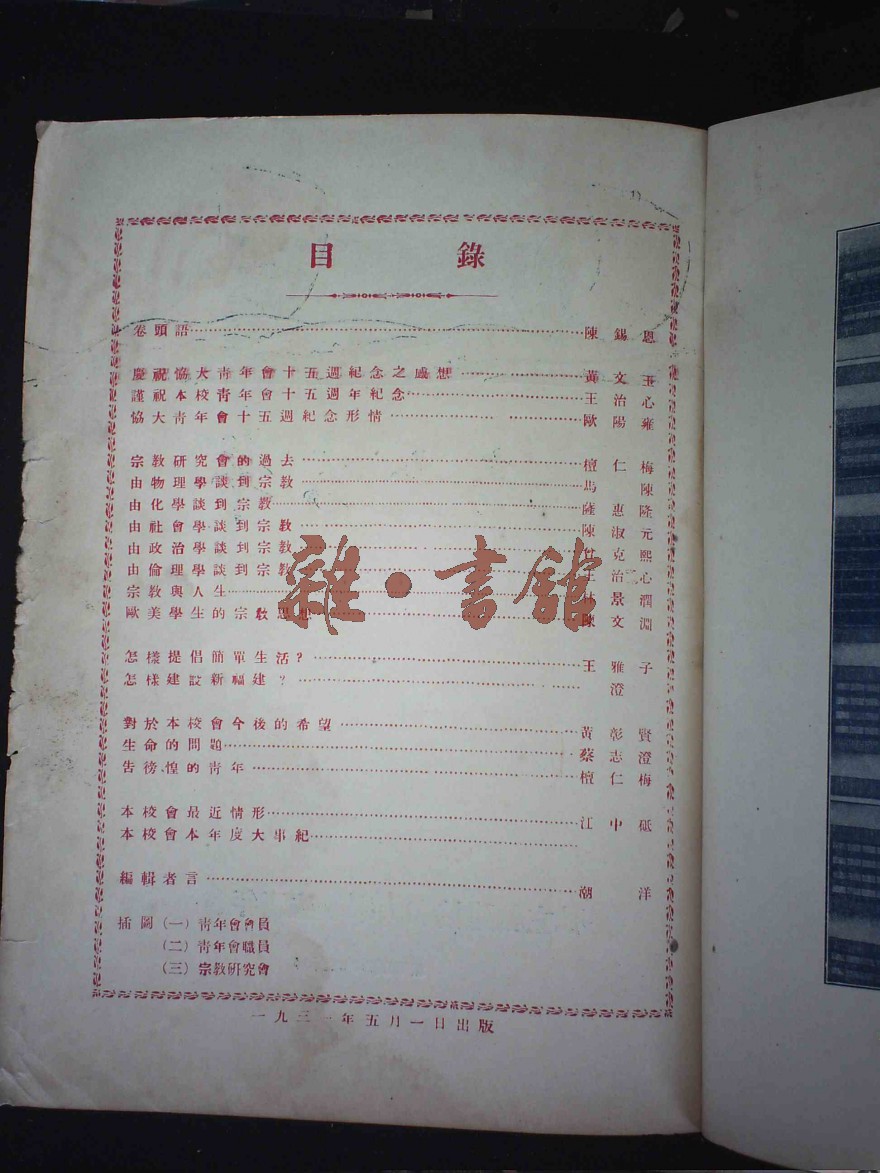 目錄
卷頭語 陳錫恩
慶祝協大靑年會十五週紀念之感想 黃文玉
謹祝本校靑年會十五週年紀念 王治心
協大靑年會十五週紀念形情 歐陽雍
宗教研究會的過去 檀仁梅
由物理學談到宗教 馬陳
由化學談到宗教 薩惠隆
由社會學談到宗教 陳淑元
由政治學談到宗教 克熙
由倫理學談到宗教 王治心
宗教與人生 林景潤
歐美學生的宗教思想 陳文淵
怎樣提倡簡單生活? 王雅子
怎樣建設新福建? 澄
對於本校會今後的希望 黃彰賢
生命的問題 蔡志澄
告徬惶的靑年 檀仁梅
本校會最近情形 江中砥
本校會本年度大事紀
編輯者言 潮洋
插圖(一)靑年會會員
(二)靑年會職員
(三)宗教研究會
一九三一年五月一日出版
雜·書館